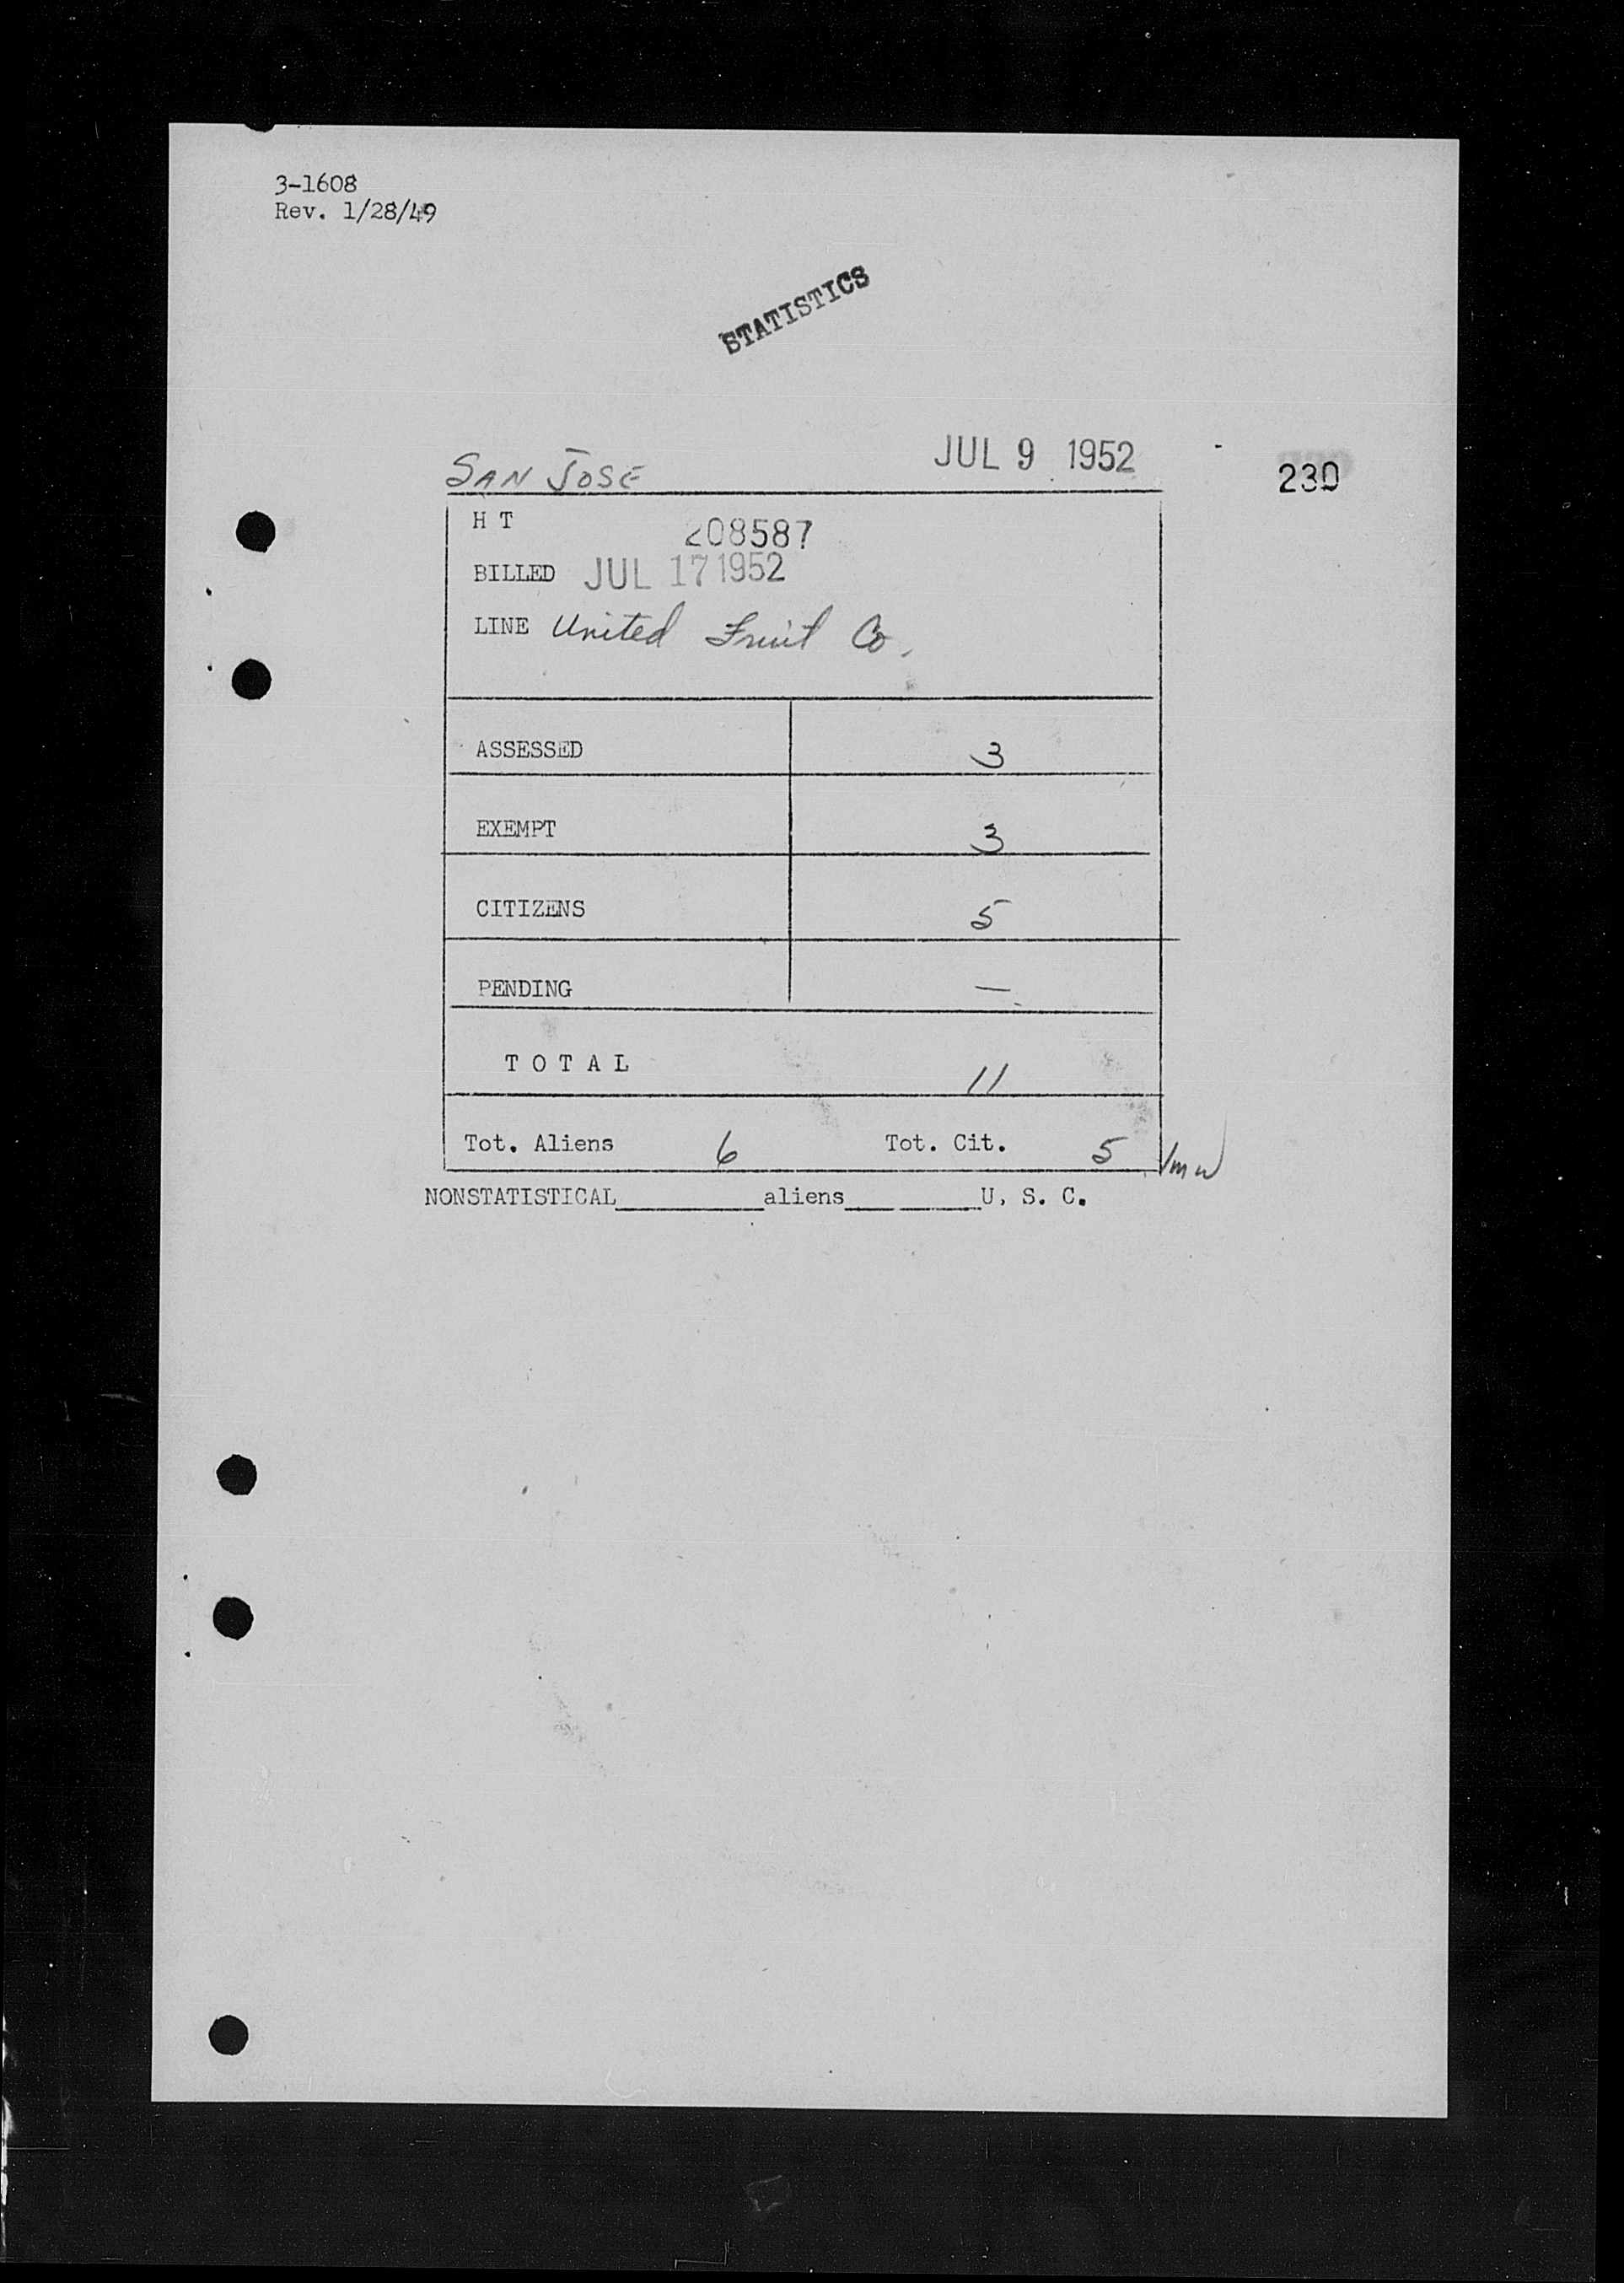 3-1608
Rev. 1/28/49
STATISTICS
SAN JOSE JUL 9 1952 230
H T 208587
BILLED JUL 17 1952
LINE United Fruit Co.
ASSESSED 3
EXEMPT 3
CITIZENS 5
PENDING —
TOTAL 11
Tot. Aliens 6 Tot. Cit. 5
NONSTATISTICAL__________aliens__________U. S. C.